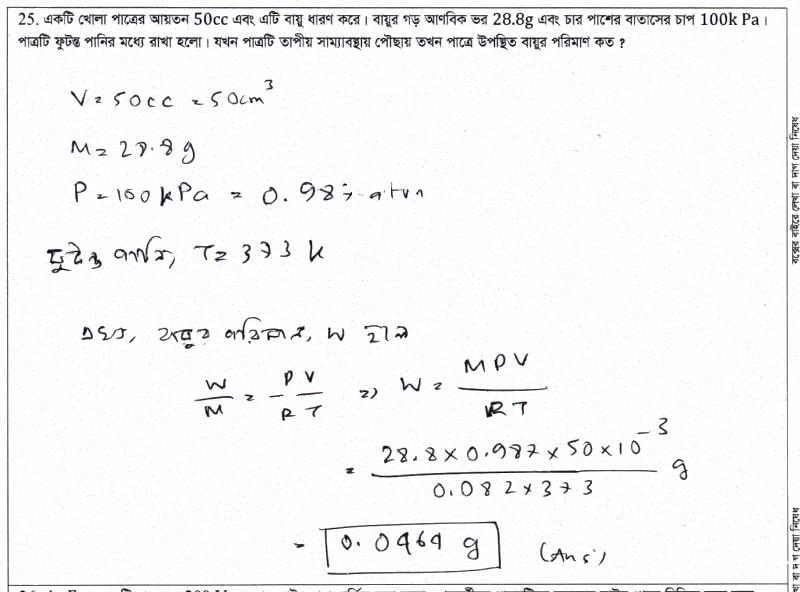 25. একটি খোলা পাত্রের আয়তন 50cc এবং এটি বায়ু ধারণ করে। বায়ুর গড় আণবিক ভর 28.8g এবং চার পাশের বাতাসের চাপ 100k Pa।
পাত্রটি ফুটন্ত পানির মধ্যে রাখা হলো। যখন পাত্রটি তাপীয় সাম্যাবস্থায় পৌছায় তখন পাত্রে উপস্থিত বায়ুর পরিমাণ কত ?
V = 50cc = 50cm³
M = 28.8g
P = 100kPa = 0.987 atm
ফুটন্ত পানি, T = 373 K
এখন, বায়ুর পরিমান, W হলে
W/M = PV/RT ⇒ W = MPV/RT
= 28.8 × 0.987 × 50 × 10⁻³ / 0.082 × 373 g
= 0.0464 g (Ans:)
বক্সের বাইরে লেখা বা দাগ দেয়া নিষেধ